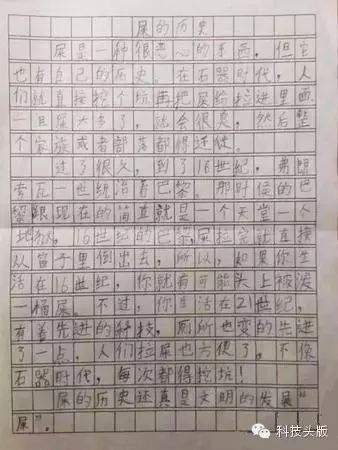 屎的历史
屎是一种很恶心的东西，但它
也有自己的历史。在石器时代，人
们就直接挖个坑，再把屎给拉进里面，
一旦屎太多了，就会很臭，然后整
个家族或者部落都得迁徙。
过了很久，到了16世纪，弗朗
索瓦一世统治着巴黎。那时候的巴
黎跟现在的简直就是一个天堂一个
地狱，16世纪的巴黎，屎拉完就直接
从窗子里倒出去，所以，如果你生
活在16世纪，你就有可能头上被泼
一桶屎。不过，你生活在21世纪，
有着先进的科技，厕所也变的先进
了一点，人们拉屎也方便了，不像
石器时代，每次都得挖坑！
屎的历史还真是文明的发展“
屎”。
科技头版